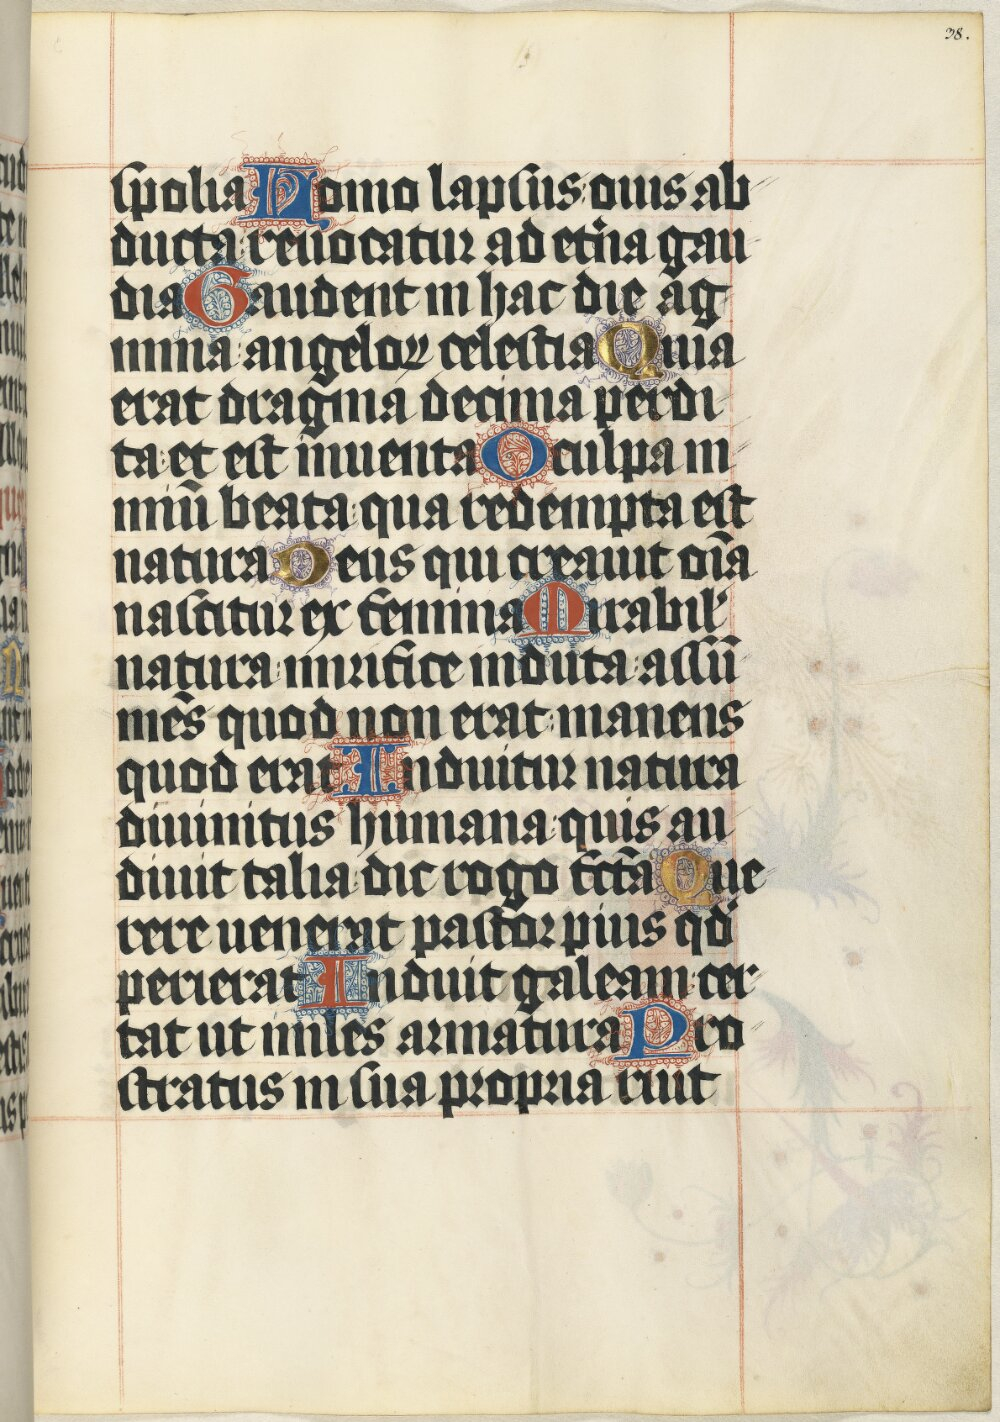 38.
spolia Homo lapsus ouis ab
ducta reuocatur ad etn̄a gau
dia Gaudent in hac die ag
mina angeloꝝ celestia Quia
erat dragma decima perdi
ta et est inuenta O culpa ni
miū beata qua redempta est
natura Deus qui creauit oīa
nascitur ex femina Mirabil'
natura mirifice induta assū
mēs quod non erat manens
quod erat Induitur natura
diuinitus humana quis au
diuit talia dic rogo fc̄tā Que
rere uenerat pastor pius qd̄
perierat Induit galeam cer
tat ut miles armatura Pro
stratus in sua propria ruit